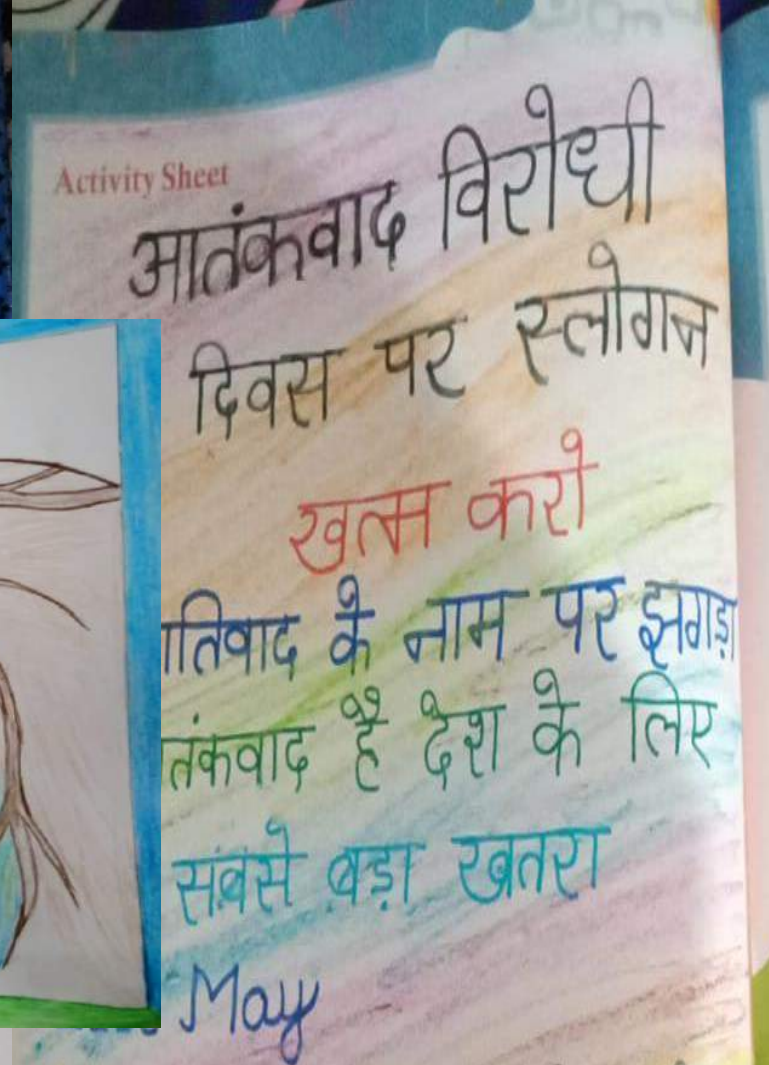 Activity Sheet
आतंकवाद विरोधी
दिवस पर स्लोगन
खत्म करो
के नाम पर झगड़ा
है देश के लिए
सबसे बड़ा खतरा
May